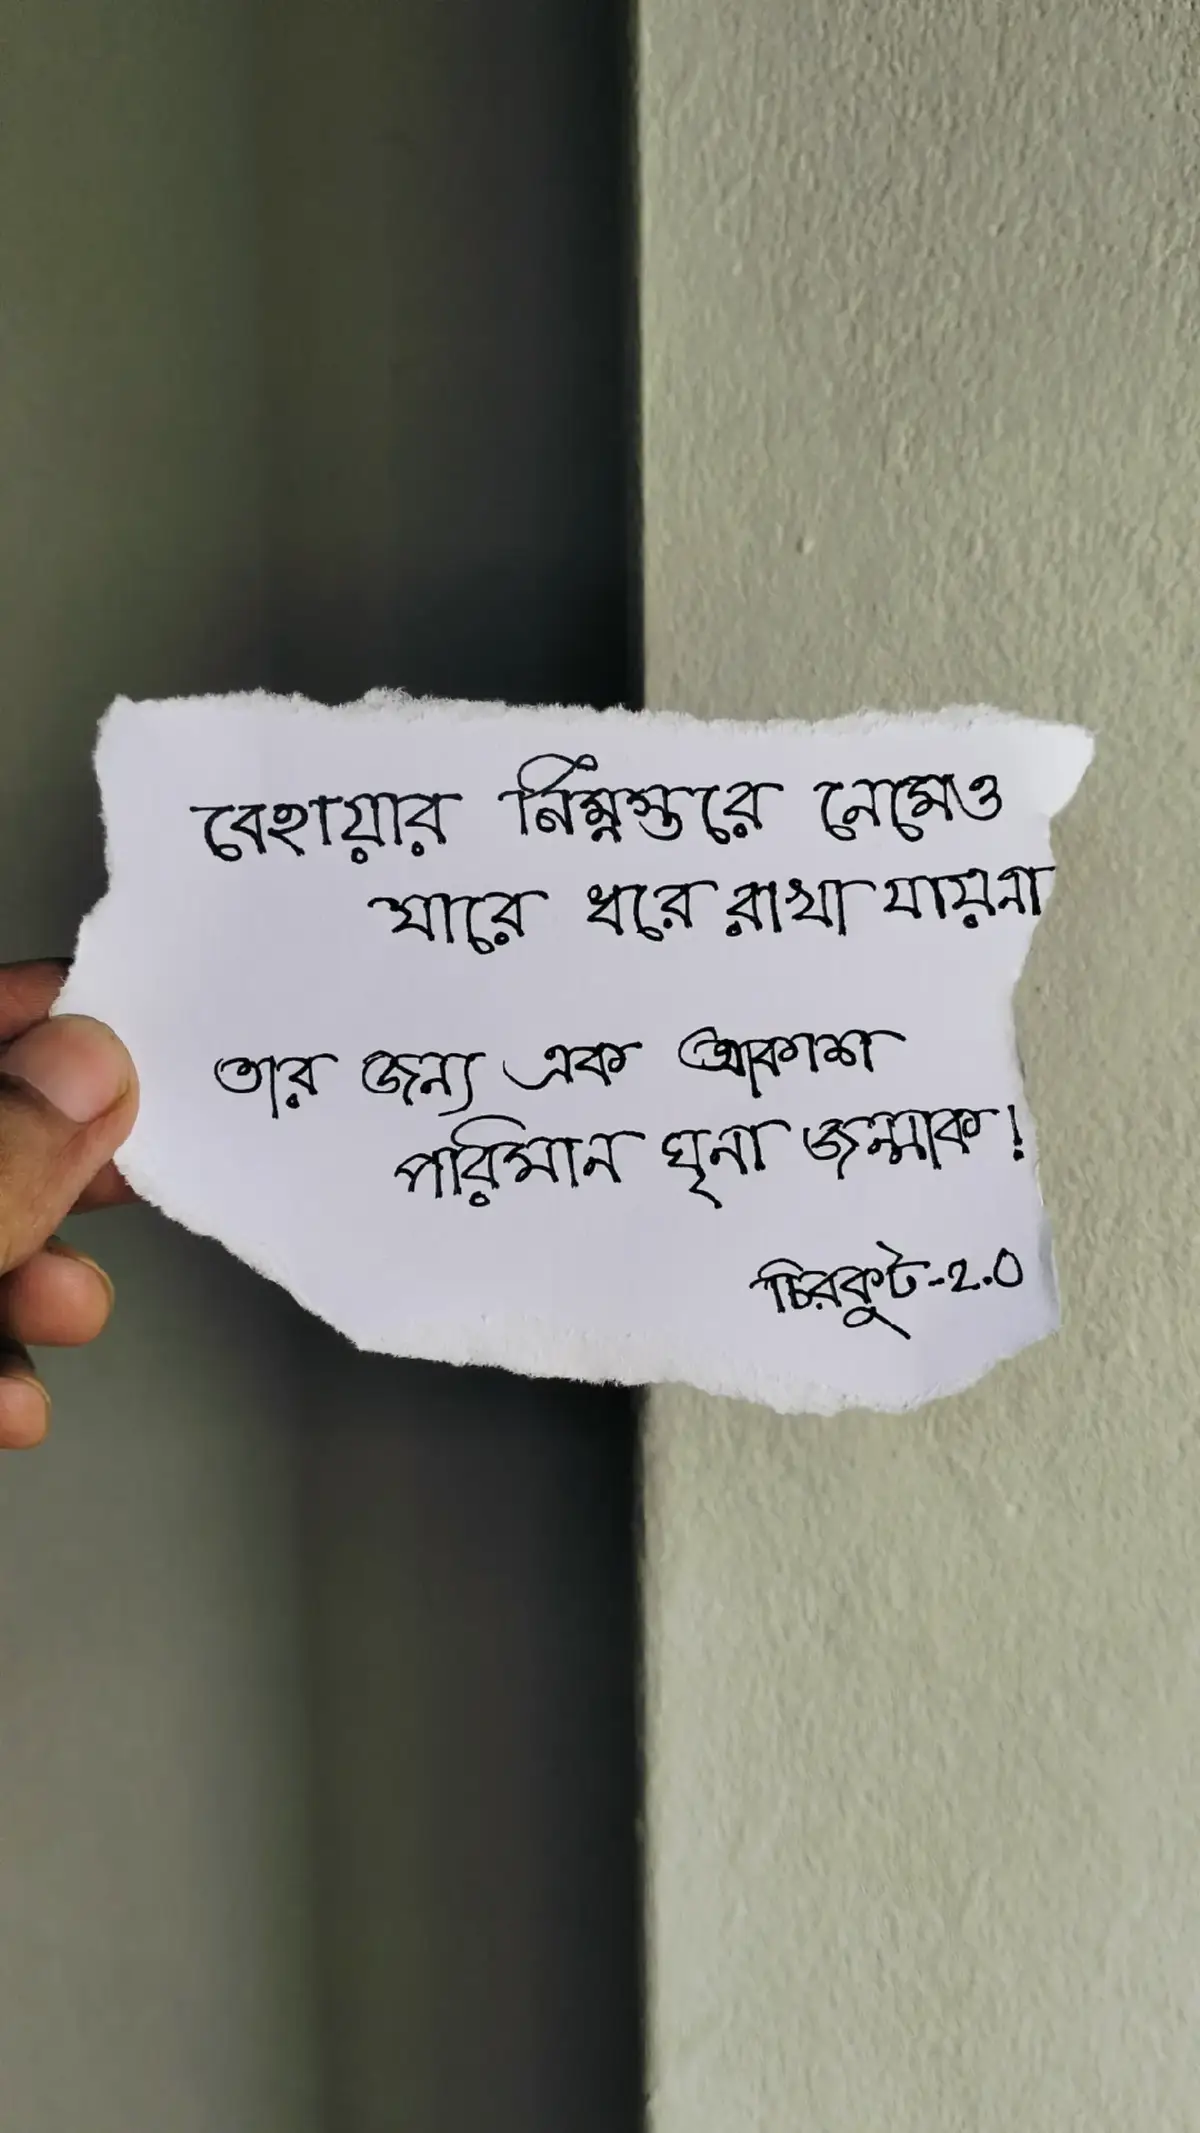 বেহায়ার নিম্নস্তরে নেমেও
যারে ধরে রাখা যায়না
তার জন্য এক আকাশ
পরিমান ঘৃনা জন্মাক!
চিরকুট-2.0